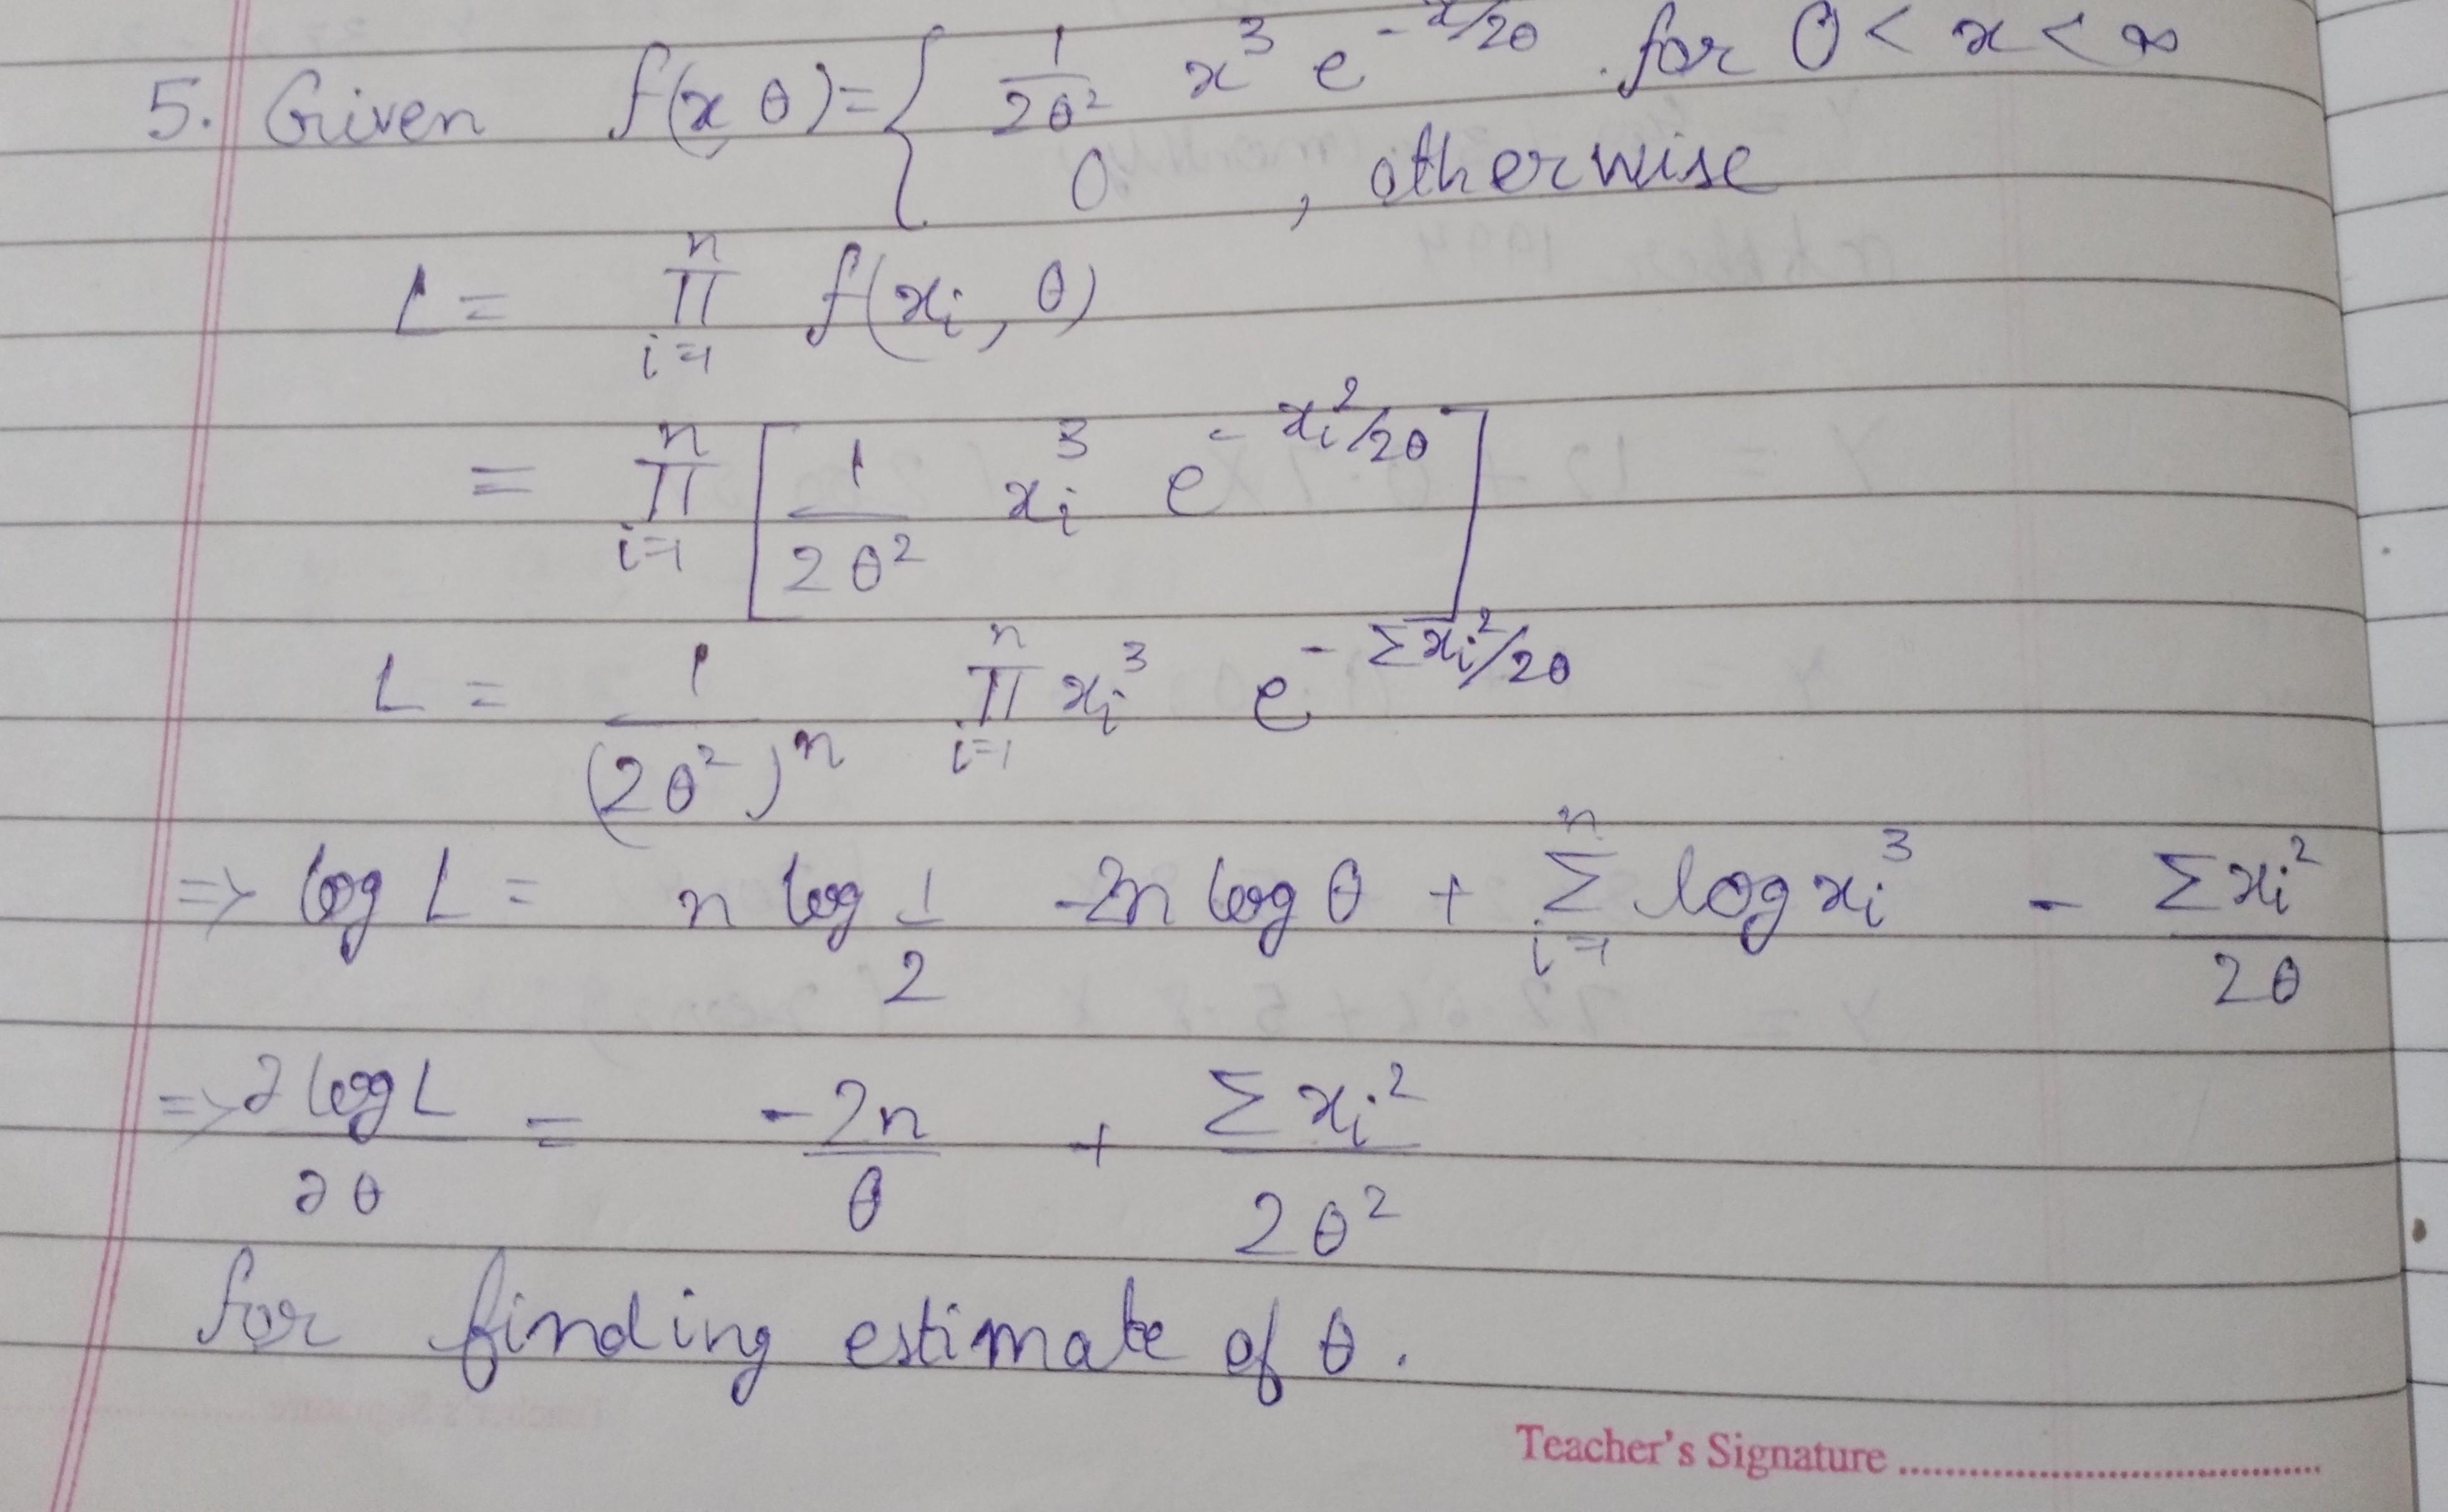 5. Given f(x, θ) = { 1/2θ² x³ e^{-x/2θ} for 0 < x < ∞
0 , otherwise
L = ∏_{i=1}^{n} f(xi, θ)
= ∏_{i=1}^{n} [ 1/2θ² xi³ e^{-xi²/2θ} ]
L = 1/(2θ²)ⁿ ∏_{i=1}^{n} xi³ e^{-Σxi²/2θ}
=> log L = n log 1/2 -2n log θ + Σ_{i=1}^{n} log xi³ - Σxi²/2θ
=> ∂ log L/∂θ = -2n/θ + Σxi²/2θ²
for finding estimate of θ.
Teacher's Signature